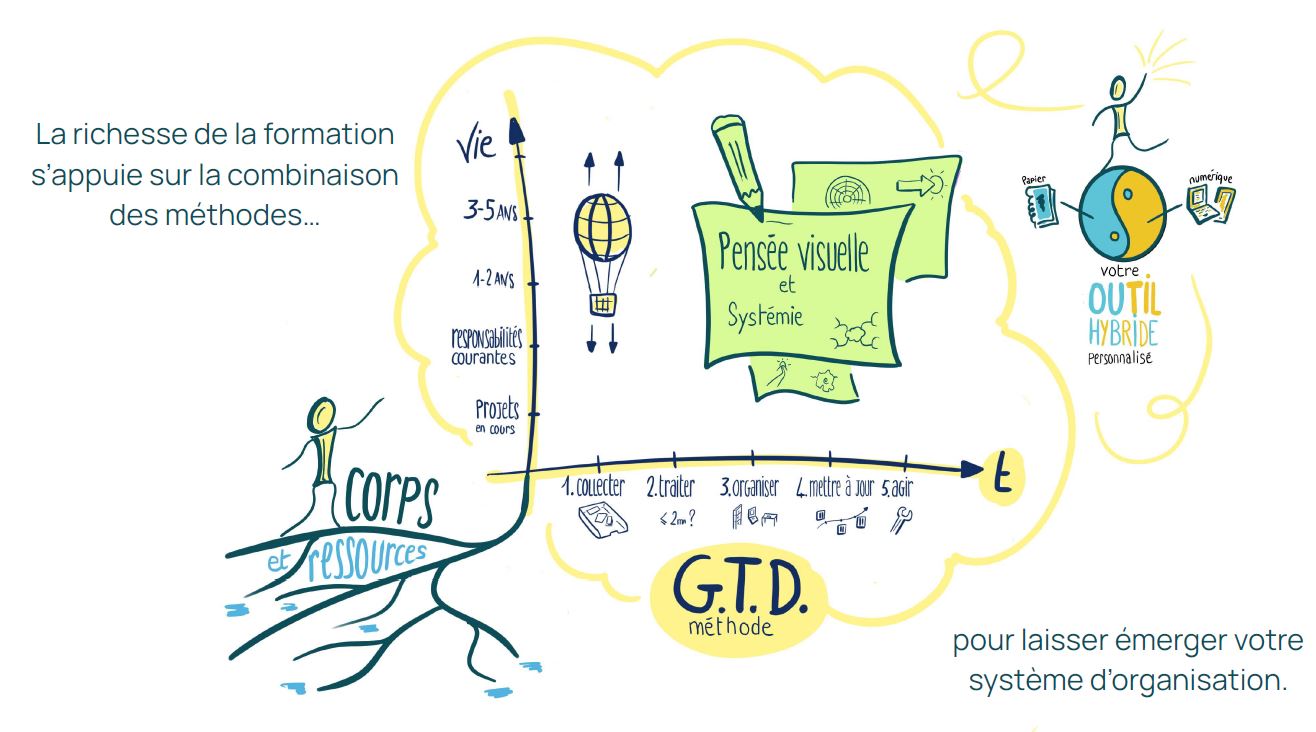 La richesse de la formation
s'appuie sur la combinaison
des méthodes...
Vie
3-5 ANS
1-2 ANS
responsabilités
courantes
Projets
en cours
Pensée visuelle
et
Systémie
Papier
numérique
votre
OUTIL
HYBRIDE
personnalisé
corps
et ressources
t
1. collecter
2. traiter
3. organiser
4. mettre à jour
5. agir
≤ 2mn ?
G.T.D.
méthode
pour laisser émerger votre
système d'organisation.